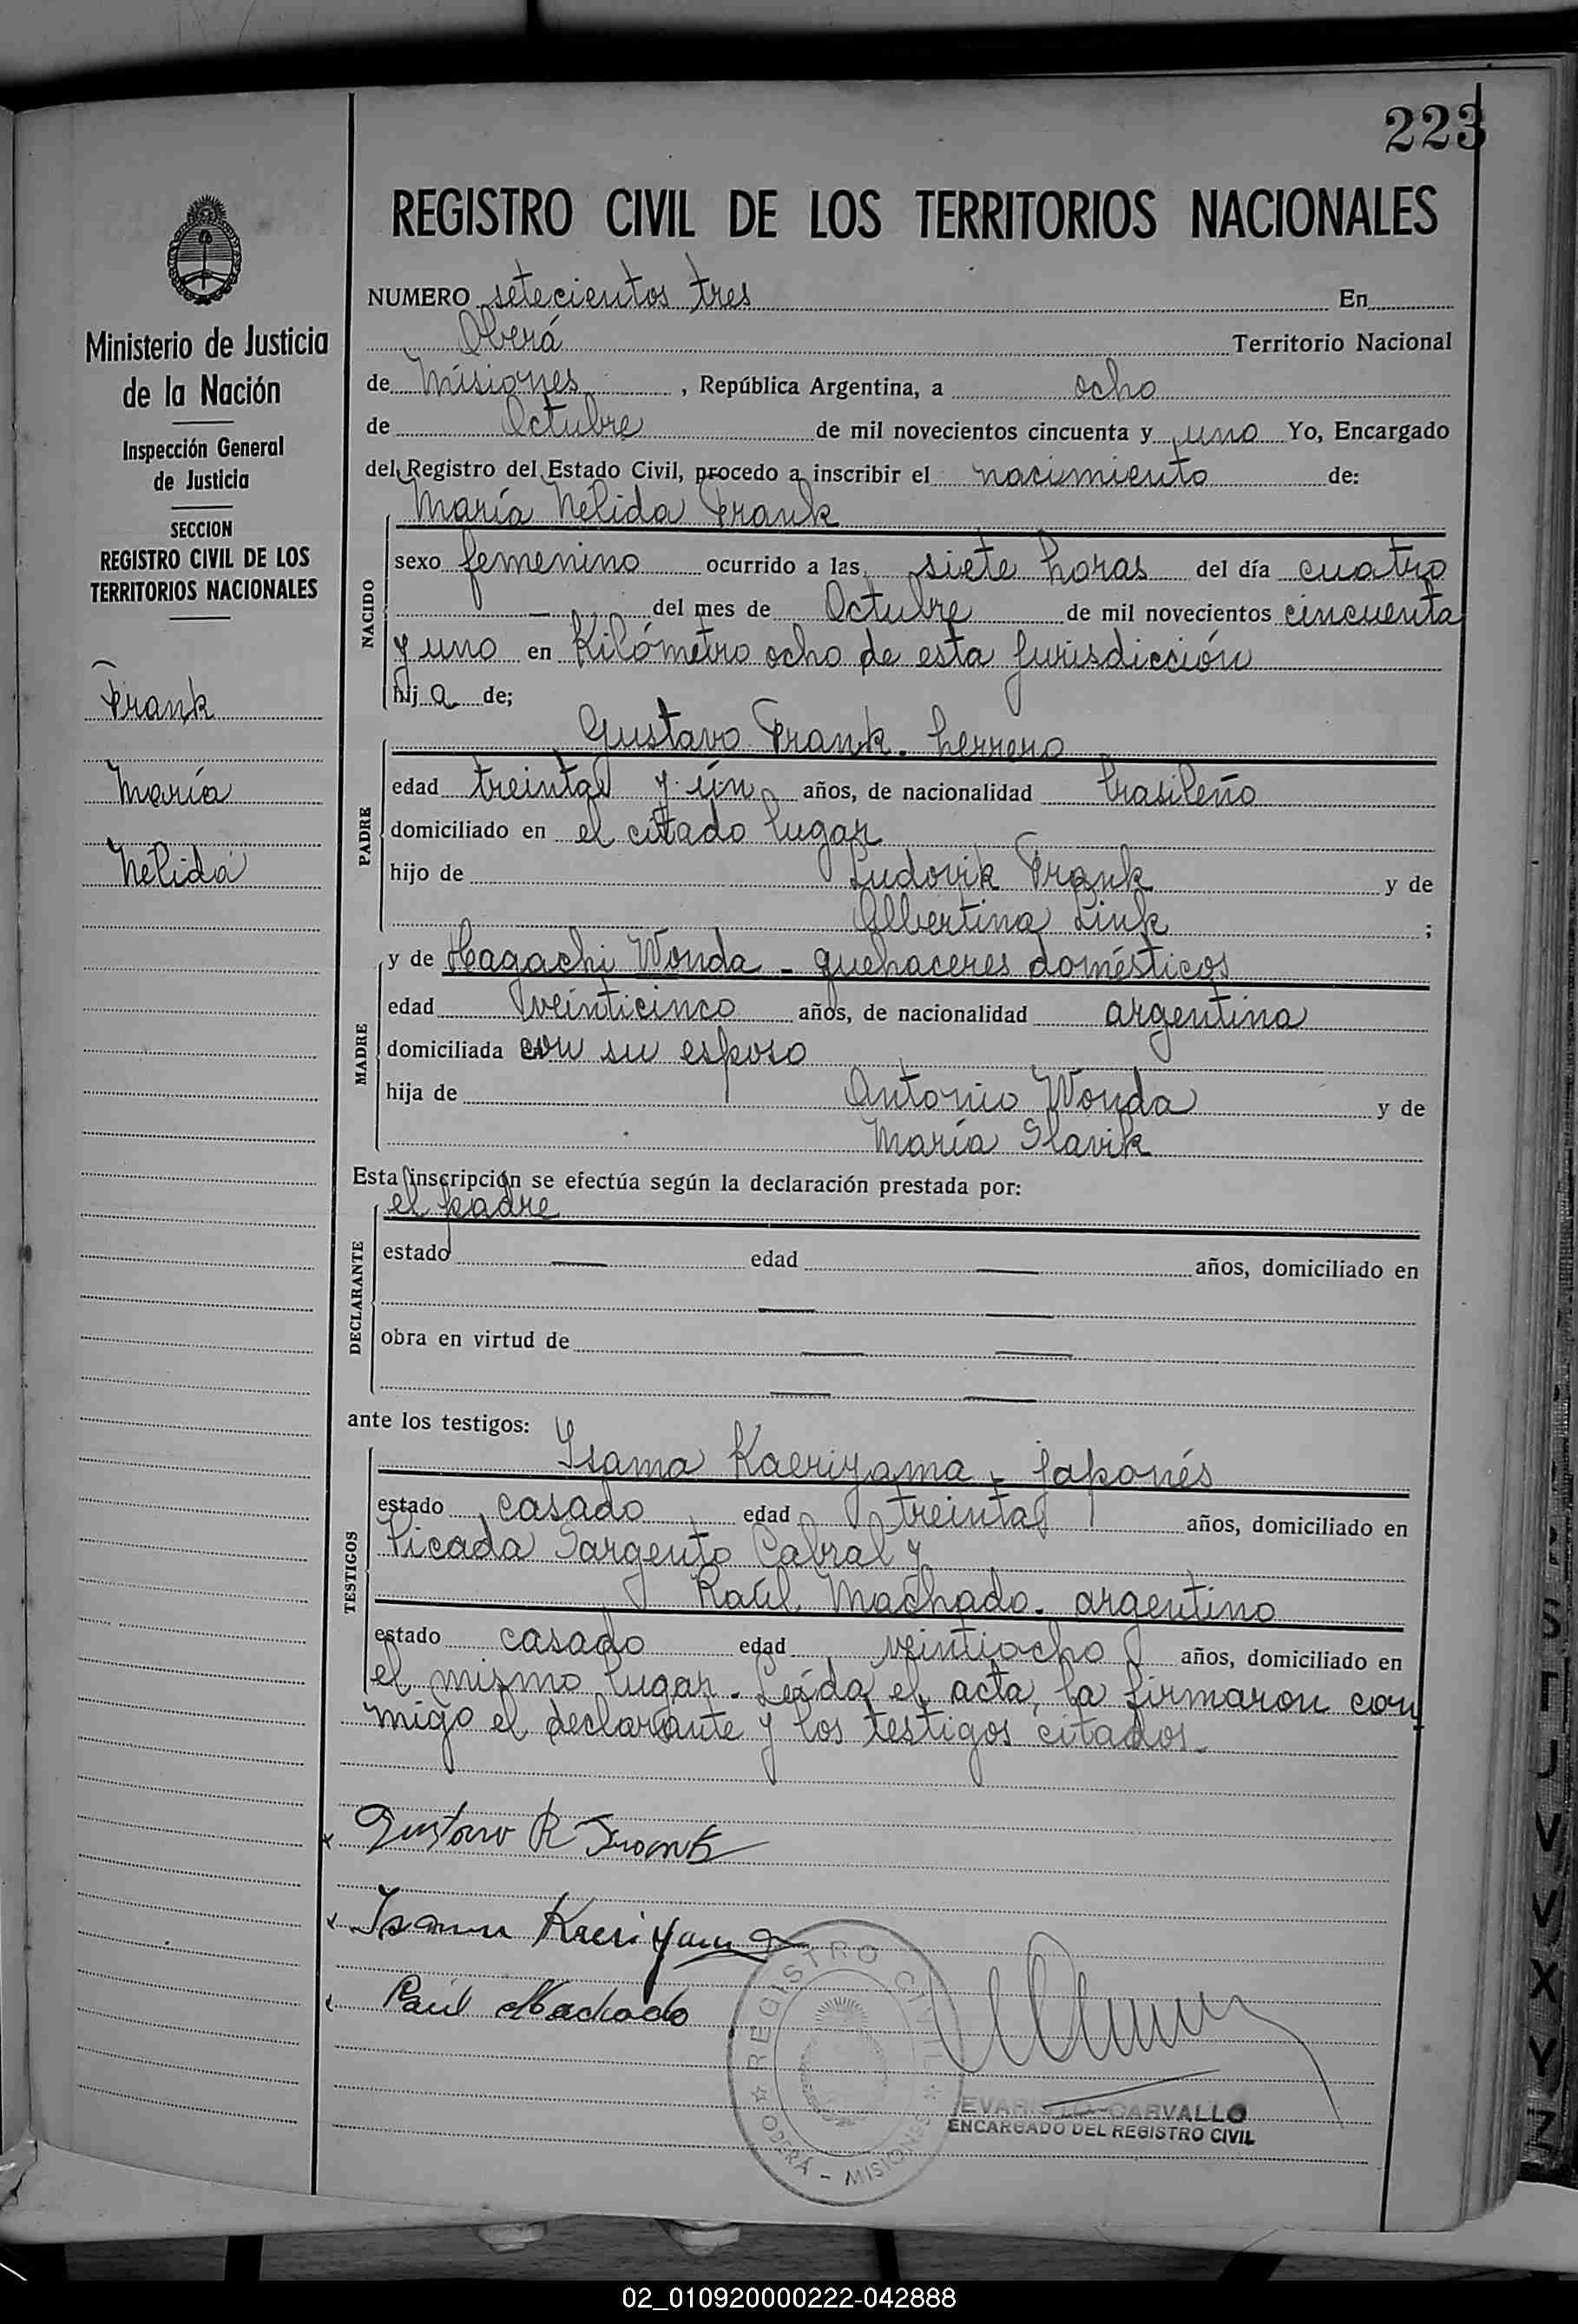 223
REGISTRO CIVIL DE LOS TERRITORIOS NACIONALES
Ministerio de Justicia
de la Nación
Inspección General
de Justicia
SECCION
REGISTRO CIVIL DE LOS
TERRITORIOS NACIONALES
Frank
María
Nelida
NUMERO setecientos tres En
Oberá Territorio Nacional
de Misiones, República Argentina, a ocho
de Octubre de mil novecientos cincuenta y uno Yo, Encargado
del Registro del Estado Civil, procedo a inscribir el nacimiento de:
NACIDO
María Nelida Frank
sexo femenino ocurrido a las siete horas del día cuatro
— del mes de Octubre de mil novecientos cincuenta
y uno en Kilómetro ocho de esta jurisdicción
hij a de;
PADRE
Gustavo Frank. herrero
edad treinta y ún años, de nacionalidad brasileño
domiciliado en el citado lugar
hijo de Ludovik Frank y de
Albertina Link ;
MADRE
y de Hagachi Wonda - quehaceres domésticos
edad veinticinco años, de nacionalidad argentina
domiciliada con su esposo
hija de Antonio Wonda y de
María Slavik
Esta inscripción se efectúa según la declaración prestada por:
DECLARANTE
el padre
estado — edad — años, domiciliado en
— —
obra en virtud de — —
— —
ante los testigos:
TESTIGOS
Isama Kaeriyama - japonés
estado casado edad treinta años, domiciliado en
Picada Sargento Cabral y
Raúl Machado. argentino
estado casado edad veintiocho años, domiciliado en
el mismo lugar. Leída el acta, la firmaron con
migo el declarante y los testigos citados.
x Gustavo R Frank
x Isamu Kaeriyama
x Raúl Machado
REGISTRO CIVIL
OBERÁ - MISIONES
EVARISTO CARVALLO
ENCARGADO DEL REGISTRO CIVIL
V
V
X
Y
Z
02_010920000222-042888